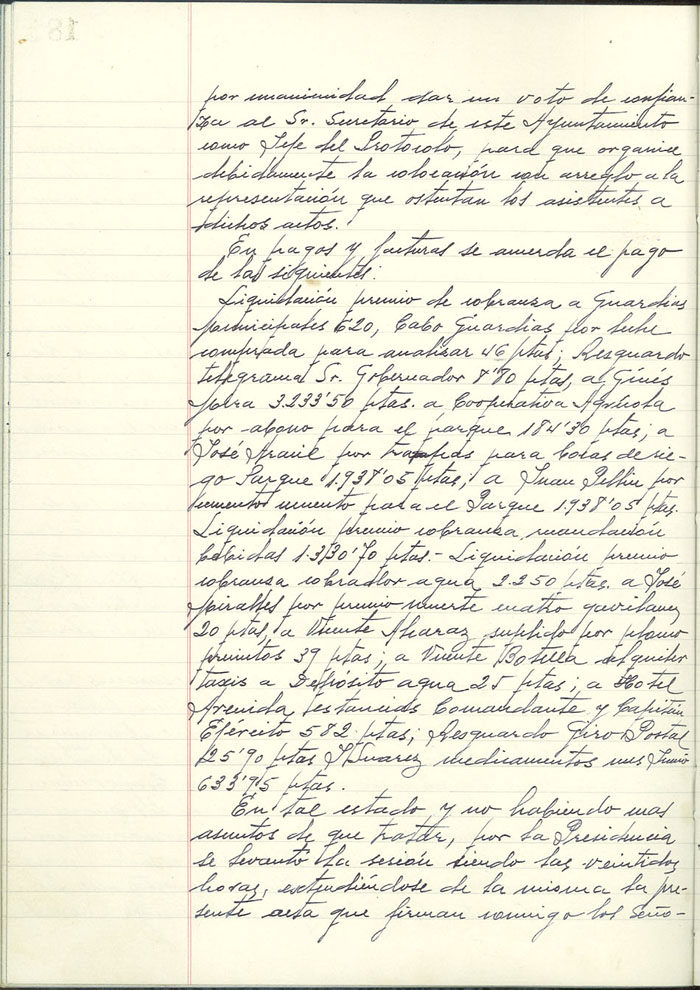 por unanimidad dar un voto de confian-
za al Sr. Secretario de este Ayuntamiento
como Jefe del Protocolo, para que organice
debidamente la colocación con arreglo a la
representación que ostentan los asistentes a
dichos actos.
En pagos y facturas se acuerda el pago
de las siguientes:
Liquidación premio de cobranza a Guardias
Municipales 620, Cabo Guardias por leche
comprada para analizar 46 ptas; Resguardo
telegrama Sr. Gobernador 7'80 ptas, a Ginés
Mira 3.233'50 ptas. a Cooperativa Agrícola
por abono para el parque 184'30 ptas; a
José por para bocas de rie-
go Parque 1.938'05 ptas; a Juan por
cemento para el Parque 1.938'05 ptas.
Liquidación premio cobranza recaudación
bebidas 1.330'70 ptas.- Liquidación premio
cobranza cobrador agua 2.250 ptas. a José
Miralles por premio muerte cuatro gavilanes
20 ptas, a Vicente Alcaraz suplido por plomo
precintos 39 ptas; a Vicente Botella alquiler
taxis a Depósito agua 25 ptas; a Hotel
Avenida estancias Comandante y Capitán
Ejército 582 ptas; Resguardo Giro Postal
125'90 ptas J. Suarez medicamentos mes Junio
633'95 ptas.
En tal estado y no habiendo mas
asuntos de que tratar, por la Presidencia
se levantó la sesión siendo las veintidos
horas, extendiéndose de la misma la pre-
sente acta que firman conmigo los Seño-